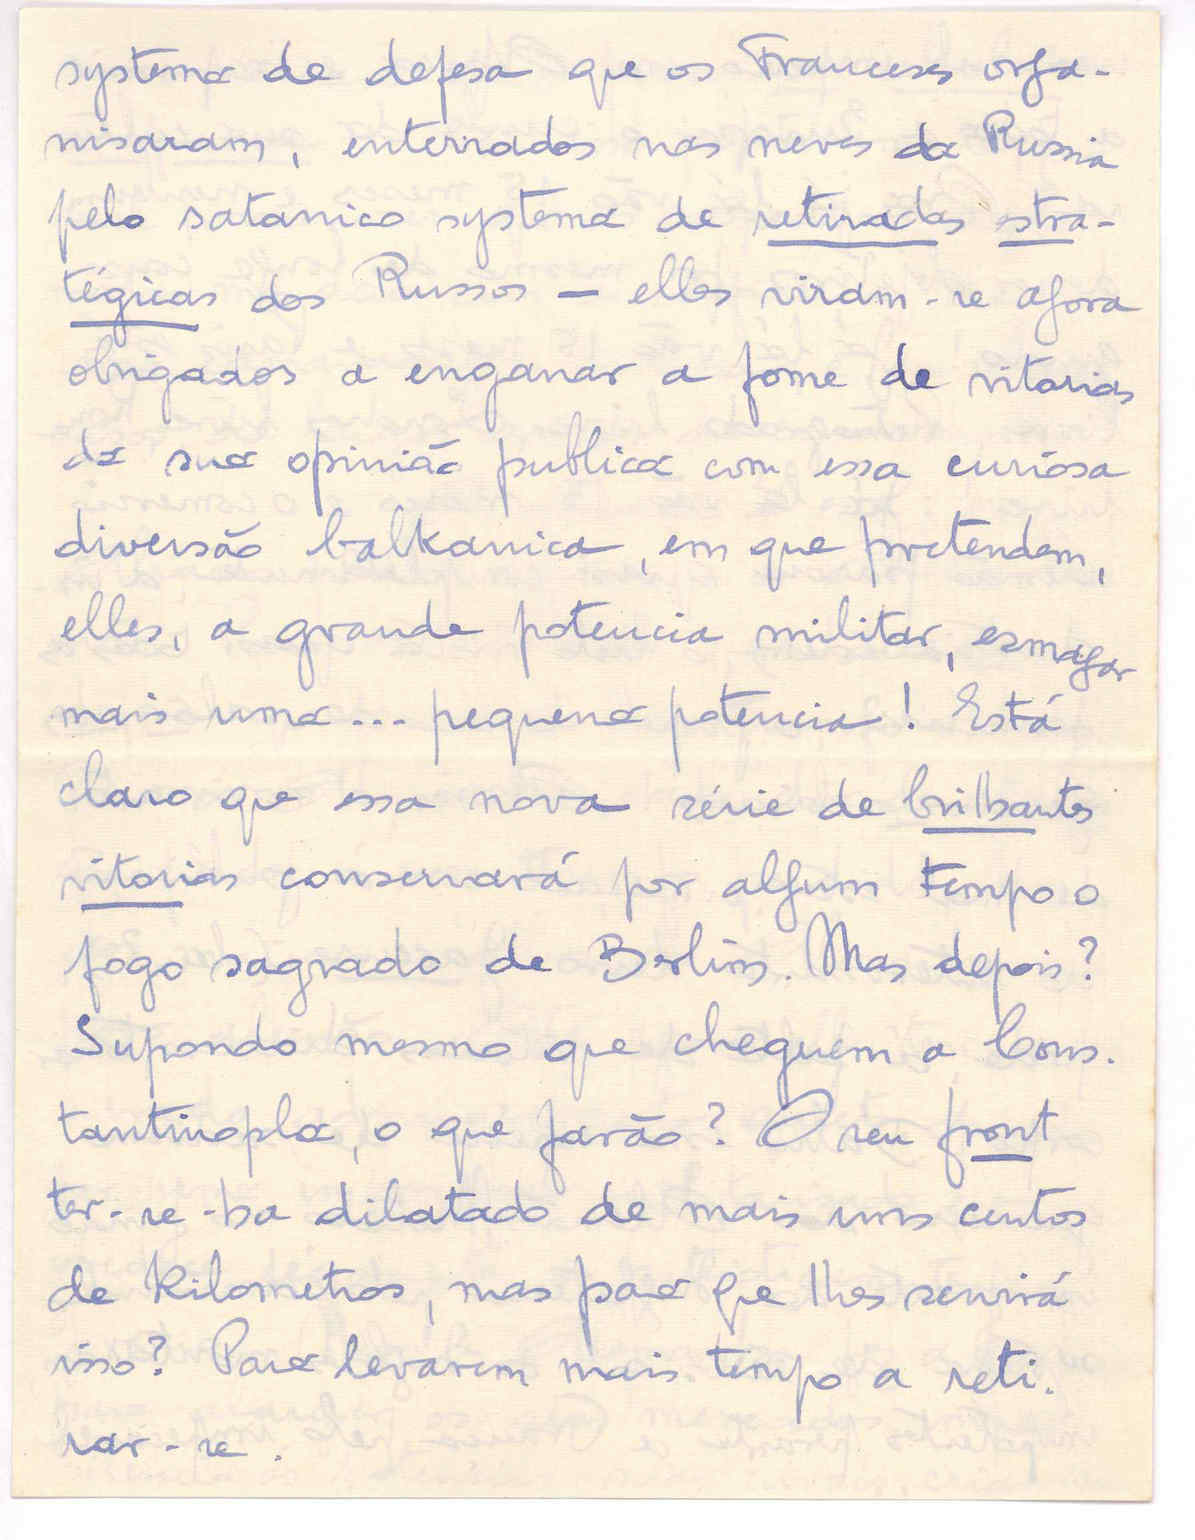 systema de defesa que os Franceses orga-
nisaram, enterrados nas neves da Russia
pelo satanico systema de retiradas stra-
tégicas dos Russos — elles viram-se agora
obrigados a enganar a fome de vitorias
da sua opinião publica com essa curiosa
diversão balkanica, em que pretendem,
elles, a grande potencia militar, esmagar
mais uma... pequena potencia! Está
claro que essa nova série de brilhantes
vitorias conservará por algum tempo o
fogo sagrado de Berlim. Mas depois?
Supondo mesmo que cheguem a Cons-
tantinopla, o que farão? O seu front
ter-se-ha dilatado de mais uns centos
de Kilometros, mas para que lhes servirá
isso? Para levarem mais tempo a reti-
rar-se.